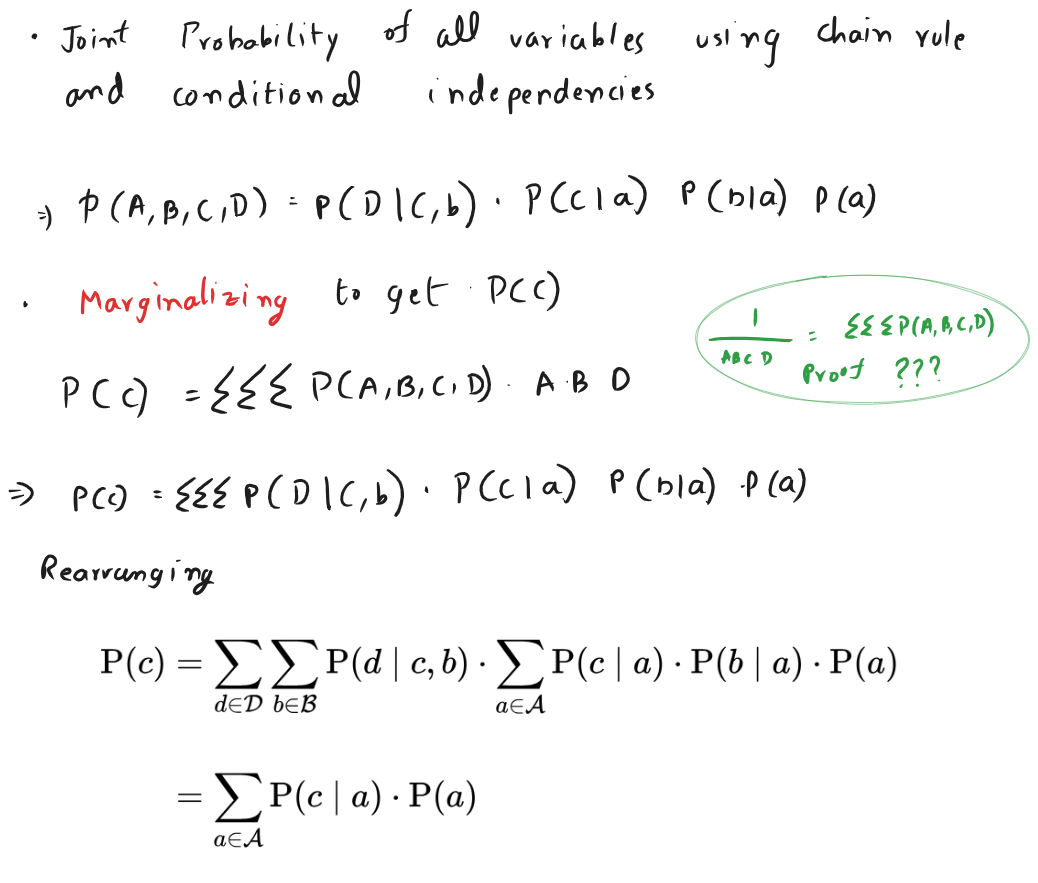 · Joint Probability of all variables using chain rule
and conditional independencies
⇒ P(A,B,C,D) = P(D|C,b) · P(C|a) P(b|a) P(a)
· Marginalizing to get P(C)
1/ABCD = ΣΣΣP(A,B,C,D)
Proof ???
P(C) = ΣΣΣ P(A,B,C,D) · A·B D
⇒ P(C) = ΣΣΣ P(D|C,b) · P(C|a) P(b|a) · P(a)
Rearranging
P(c) = ∑_{d∈𝒟} ∑_{b∈ℬ} P(d | c, b) · ∑_{a∈𝒜} P(c | a) · P(b | a) · P(a)
= ∑_{a∈𝒜} P(c | a) · P(a)